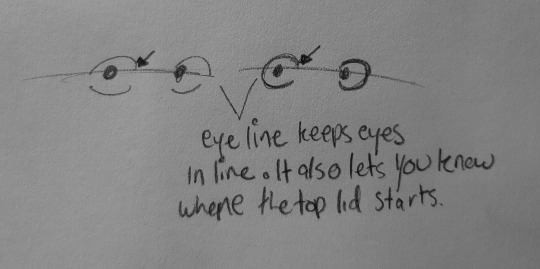 eye line keeps eyes
in line. It also lets you know
where the top lid starts.